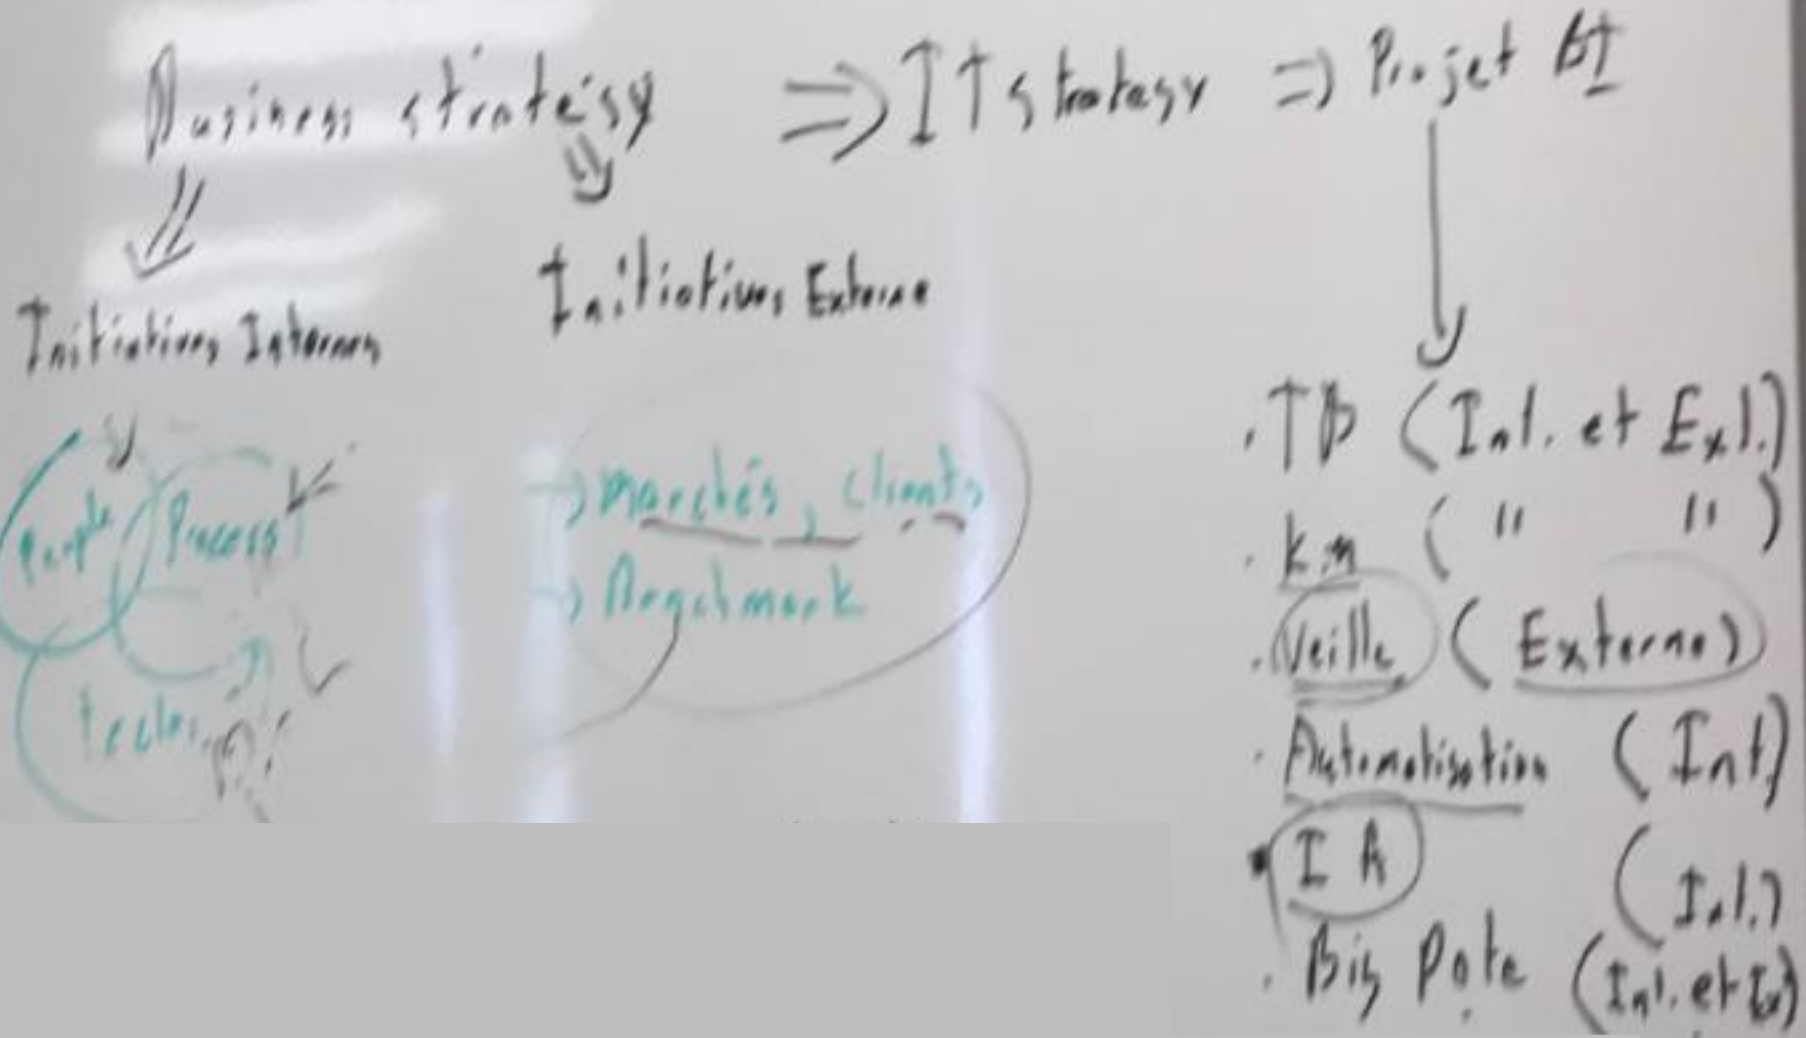 Business strategy ⇒ IT Strategy ⇒ Projet BI
Initiatives Internes
Initiatives Externe
People
Process
techno
→ Marchés, clients
→ Bengchmark
. TB (Int. et Ext.)
. km ( " " )
. Veille (Externe)
. Automatisation (Int)
. IA (Int.)
. Big Data (Int. et Ex)